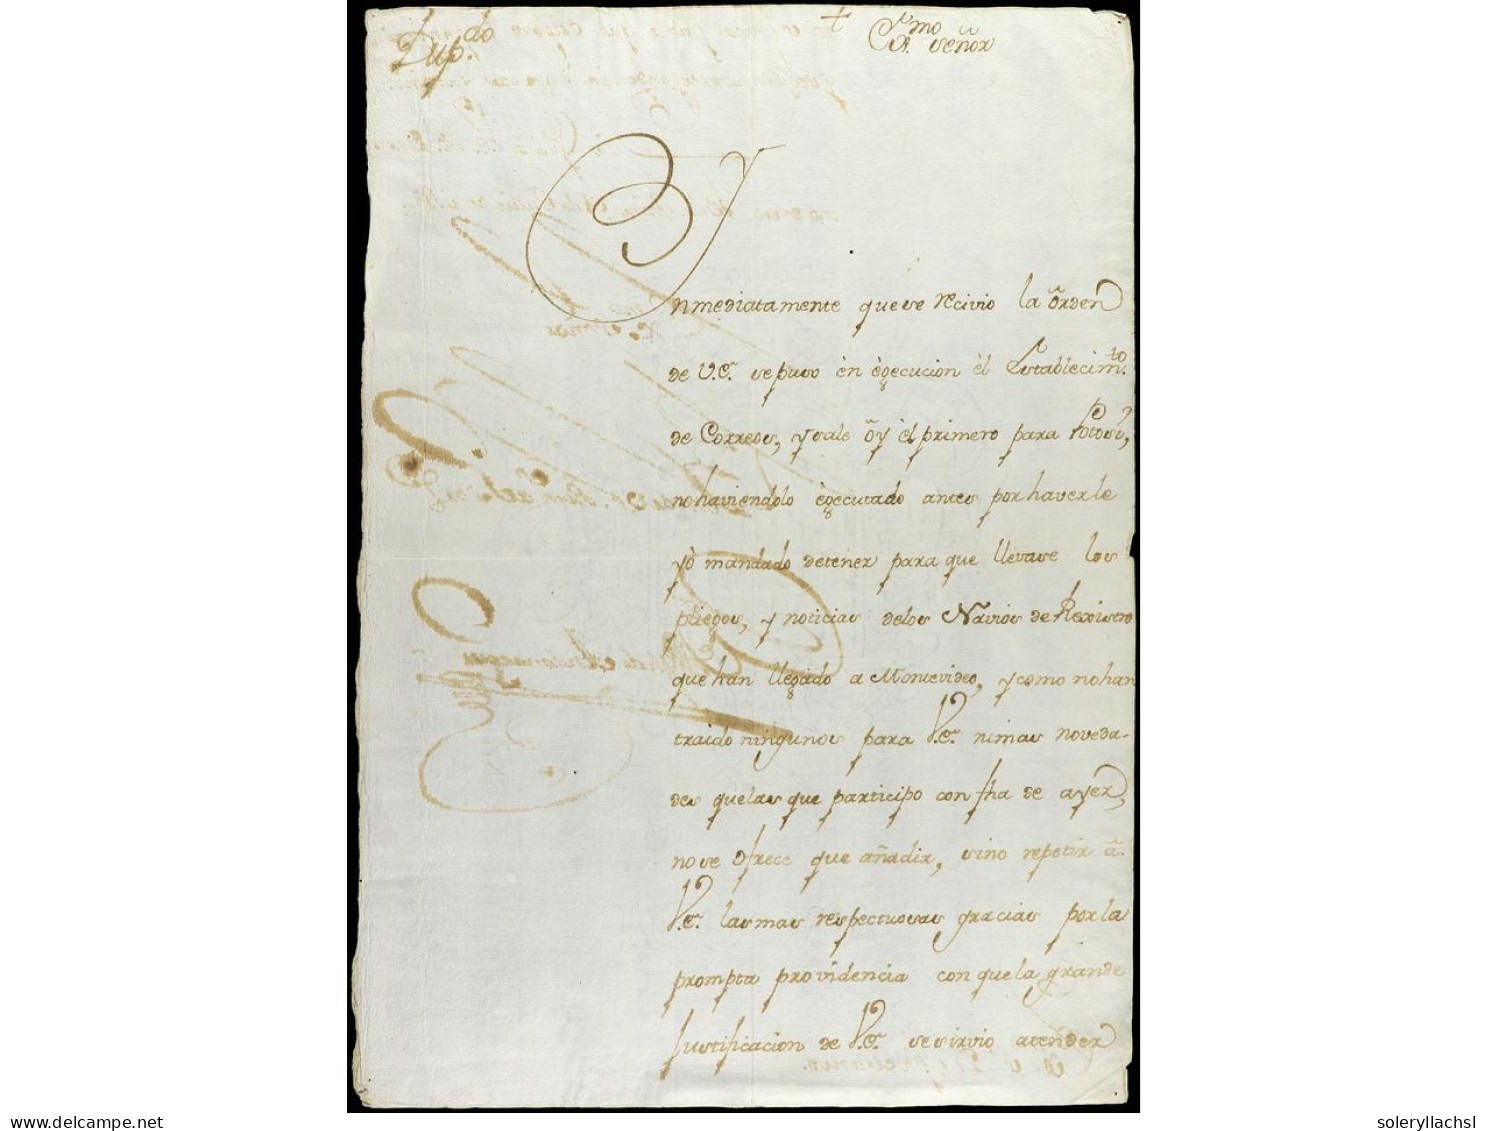 Dup.do
+
Exmo Señor
Ynmediatamente que se recivio la orden
de V.E. se puso èn ègecucion èl Establecimto.
de Correos, y sale oy èl primero para Potosi,
no haviendolo ègecutado antes por haverle
yò mandado detener para que llevase los
pliegos, y noticias de los Navios de Rexistro
que han llegado a Montevideo, y como no han
traido ningunos para V.E. ni mas noveda-
des que las que participo con fha de ayer,
no se ofrece que añadir, sino repetir à
V.E. las mas respectuosas gracias por la
prompta providencia con que la grande
Justificacion de V.E. se sirvio atender
www.delcampe.net
soleryllachsl